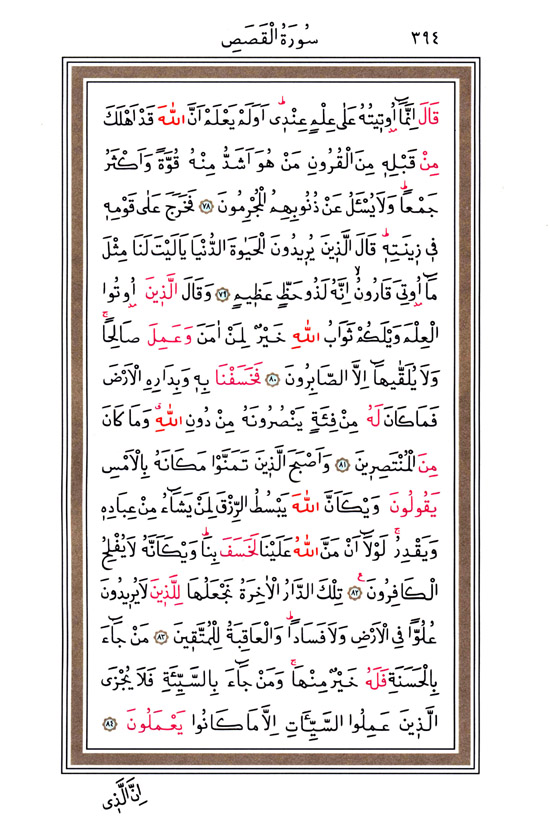 ٣٩٤
سُورَةُ الْقَصَصِ
قَالَ اِنَّمَٓا اُو۫ت۪يتُهُ عَلٰى عِلْمٍ عِنْد۪يۜ اَوَلَمْ يَعْلَمْ اَنَّ اللّٰهَ قَدْ اَهْلَكَ
مِنْ قَبْلِه۪ مِنَ الْقُرُونِ مَنْ هُوَ اَشَدُّ مِنْهُ قُوَّةً وَاَكْثَرُ
جَمْعاًۜ وَلَا يُسْـَٔلُ عَنْ ذُنُوبِهِمُ الْمُجْرِمُونَ ﴿٧٨﴾ فَخَرَجَ عَلٰى قَوْمِه۪
ف۪ي ز۪ينَتِه۪ۜ قَالَ الَّذ۪ينَ يُر۪يدُونَ الْحَيٰوةَ الدُّنْيَا يَا لَيْتَ لَنَا مِثْلَ
مَٓا اُو۫تِيَ قَارُونُۙ اِنَّهُ لَذُو حَظٍّ عَظ۪يمٍ ﴿٧٩﴾ وَقَالَ الَّذ۪ينَ اُو۫تُوا
الْعِلْمَ وَيْلَكُمْ ثَوَابُ اللّٰهِ خَيْرٌ لِمَنْ اٰمَنَ وَعَمِلَ صَالِحاًۚ
وَلَا يُلَقّٰيهَٓا اِلَّا الصَّابِرُونَ ﴿٨٠﴾ فَخَسَفْنَا بِه۪ وَبِدَارِهِ الْاَرْضَ
فَمَا كَانَ لَهُ مِنْ فِئَةٍ يَنْصُرُونَهُ مِنْ دُونِ اللّٰهِۗ وَمَا كَانَ
مِنَ الْمُنْتَصِر۪ينَ ﴿٨١﴾ وَاَصْبَحَ الَّذ۪ينَ تَمَنَّوْا مَكَانَهُ بِالْاَمْسِ
يَقُولُونَ وَيْكَاَنَّ اللّٰهَ يَبْسُطُ الرِّزْقَ لِمَنْ يَشَٓاءُ مِنْ عِبَادِه۪
وَيَقْدِرُۚ لَوْلَٓا اَنْ مَنَّ اللّٰهُ عَلَيْنَا لَخَسَفَ بِنَاۜ وَيْكَاَنَّهُ لَا يُفْلِحُ
الْكَافِرُونَ۟ ﴿٨٢﴾ تِلْكَ الدَّارُ الْاٰخِرَةُ نَجْعَلُهَا لِلَّذ۪ينَ لَا يُر۪يدُونَ
عُلُواًّ فِي الْاَرْضِ وَلَا فَسَاداًۜ وَالْعَاقِبَةُ لِلْمُتَّق۪ينَ ﴿٨٣﴾ مَنْ جَٓاءَ
بِالْحَسَنَةِ فَلَهُ خَيْرٌ مِنْهَاۚ وَمَنْ جَٓاءَ بِالسَّيِّئَةِ فَلَا يُجْزَى
الَّذ۪ينَ عَمِلُوا السَّيِّـَٔاتِ اِلَّا مَا كَانُوا يَعْمَلُونَ ﴿٨٤﴾
اِنَّ الَّذ۪ي